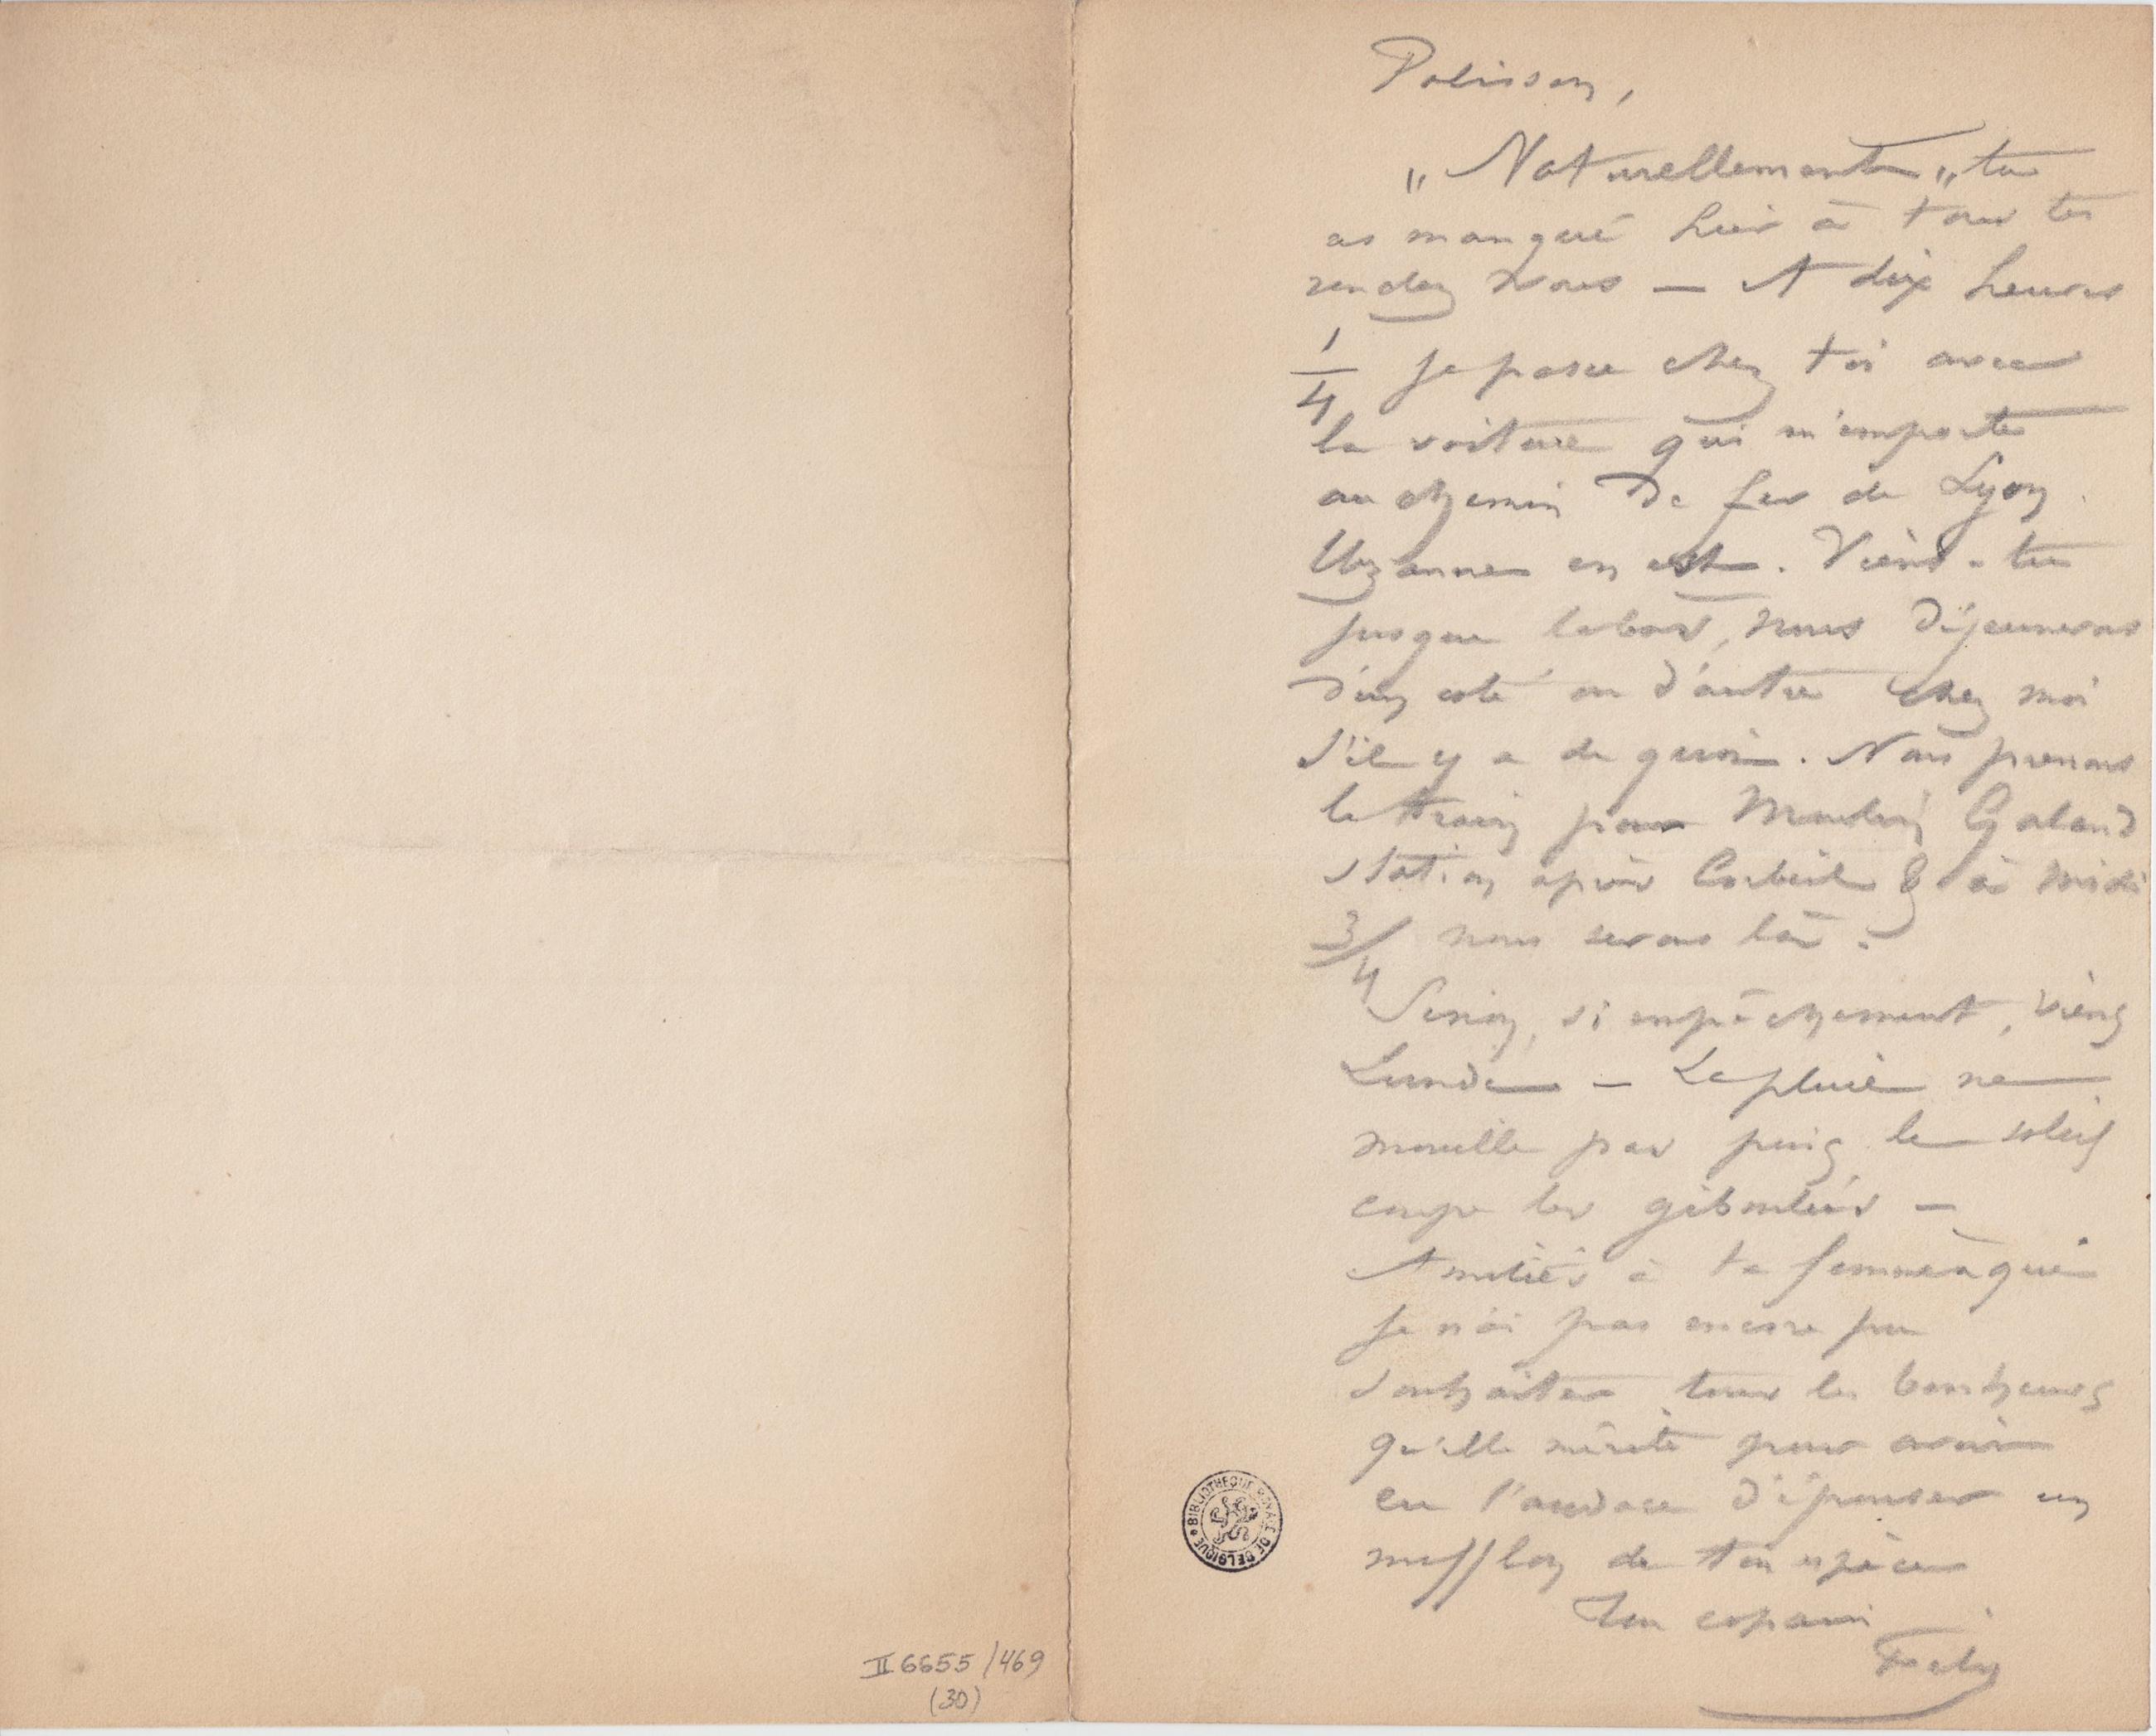 Polisson,
„ Naturellement „ tu
as manqué hier à tous tes
rendez vous — A dix heures
1/4 je passe chez toi avec
la voiture qui m'emporte
au chemin de fer de Lyon.
Uzanne en est. Viens-tu
jusque labas, nous déjeunerons
d'un coté ou d'autre chez moi
s'il y a de quoi. Nous prenons
le train pour Moulin Galand
station après Corbeil & à midi
3/4 nous serons là.
Sinon, si empêchement, viens
Lundi — La pluie ne
mouille pas puis le soleil
coupe les giboulées —
Amitiés à ta femme à qui
je n'ai pas encore pu
souhaiter tous les bonheurs
qu'elle mérite pour avoir
eu l'audace d'épouser un
mufflon de ton espèce
Ton copain
Fély
BIBLIOTHEQUE ROYALE DE BELGIQUE
II 6655/469
(30)